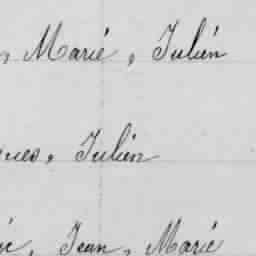 , Marié, Julién
ques, Julién
ié, Jean, Marié